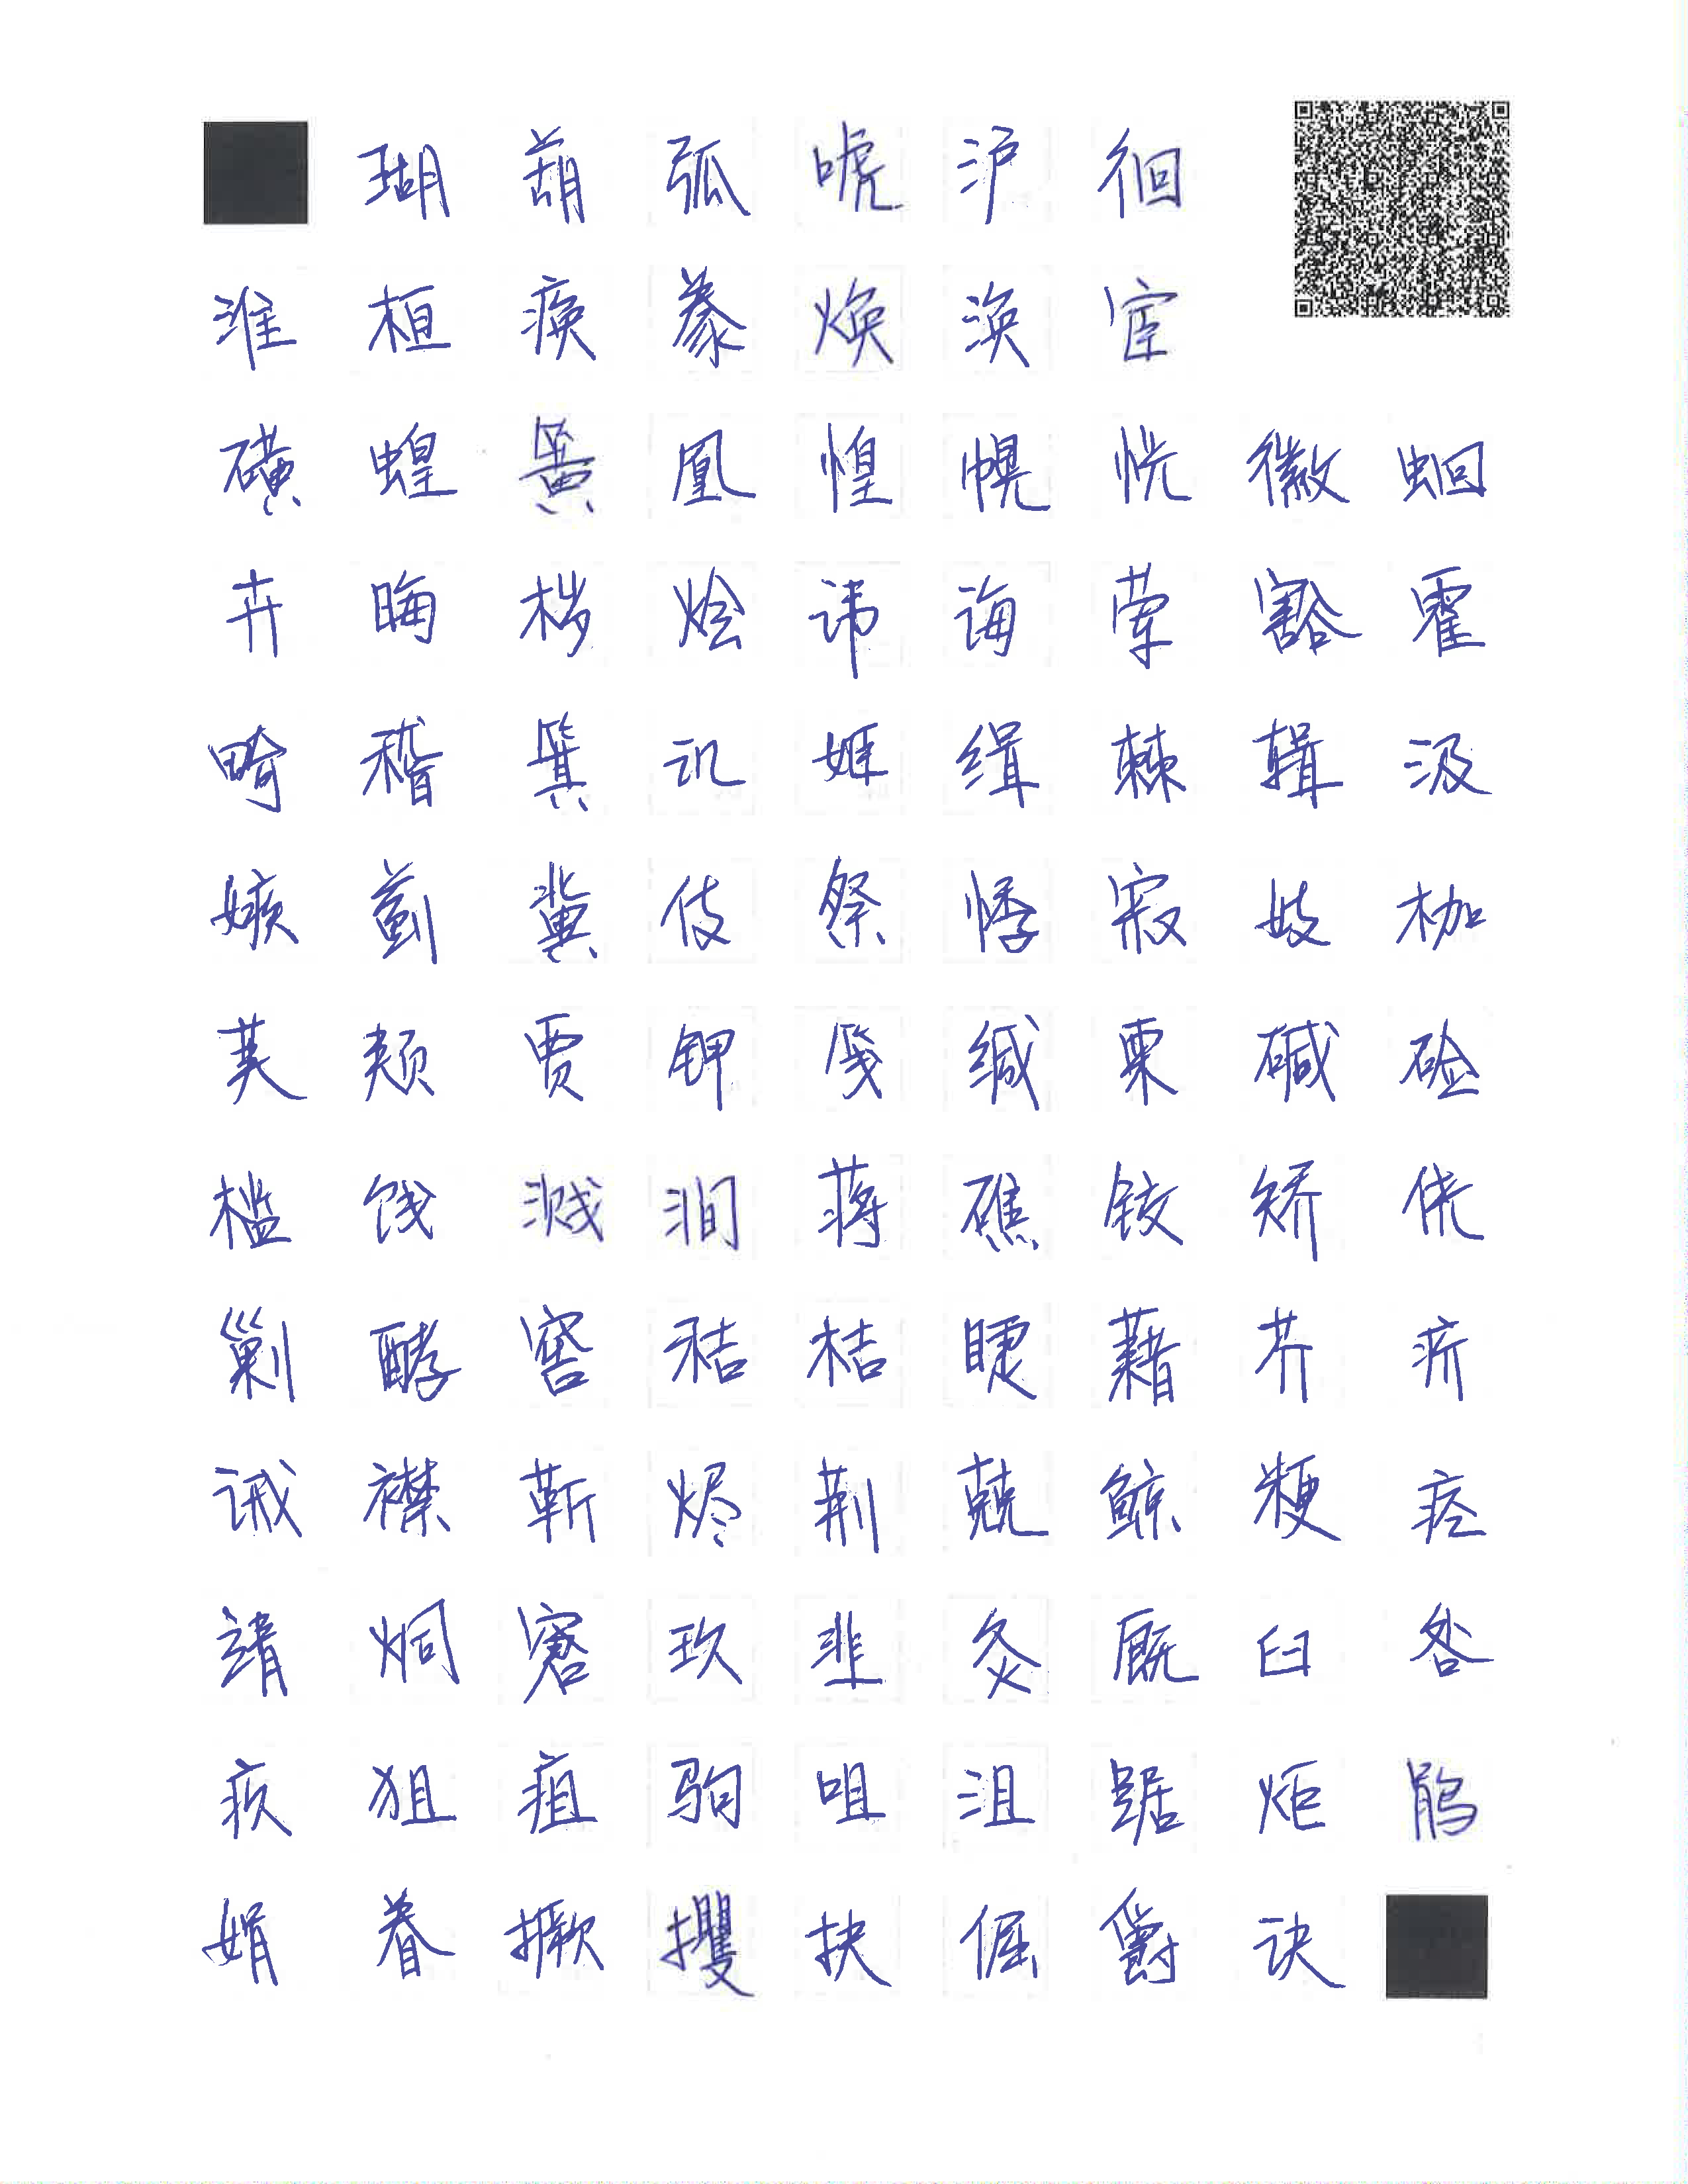 瑚葫弧唬沪徊
淮桓痪豢焕涣宦
磺蝗簧凰惶幌恍徽蛔
卉晦秽烩讳诲荤豁霍
畸稽箕讥姬缉棘辑汲
嫉蓟冀伎祭悸寂妓枷
荚颊贾钾笺缄栗碱硷
槛饯溅涧蒋礁铰矫侥
剿酵窖秸桔睫藉芥疥
诫襟靳烬荆兢鲸粳痉
靖炯窘玖韭灸厩臼咎
疚狙疽驹咀沮踞炬鹃
娟眷撅攫抉倔爵诀